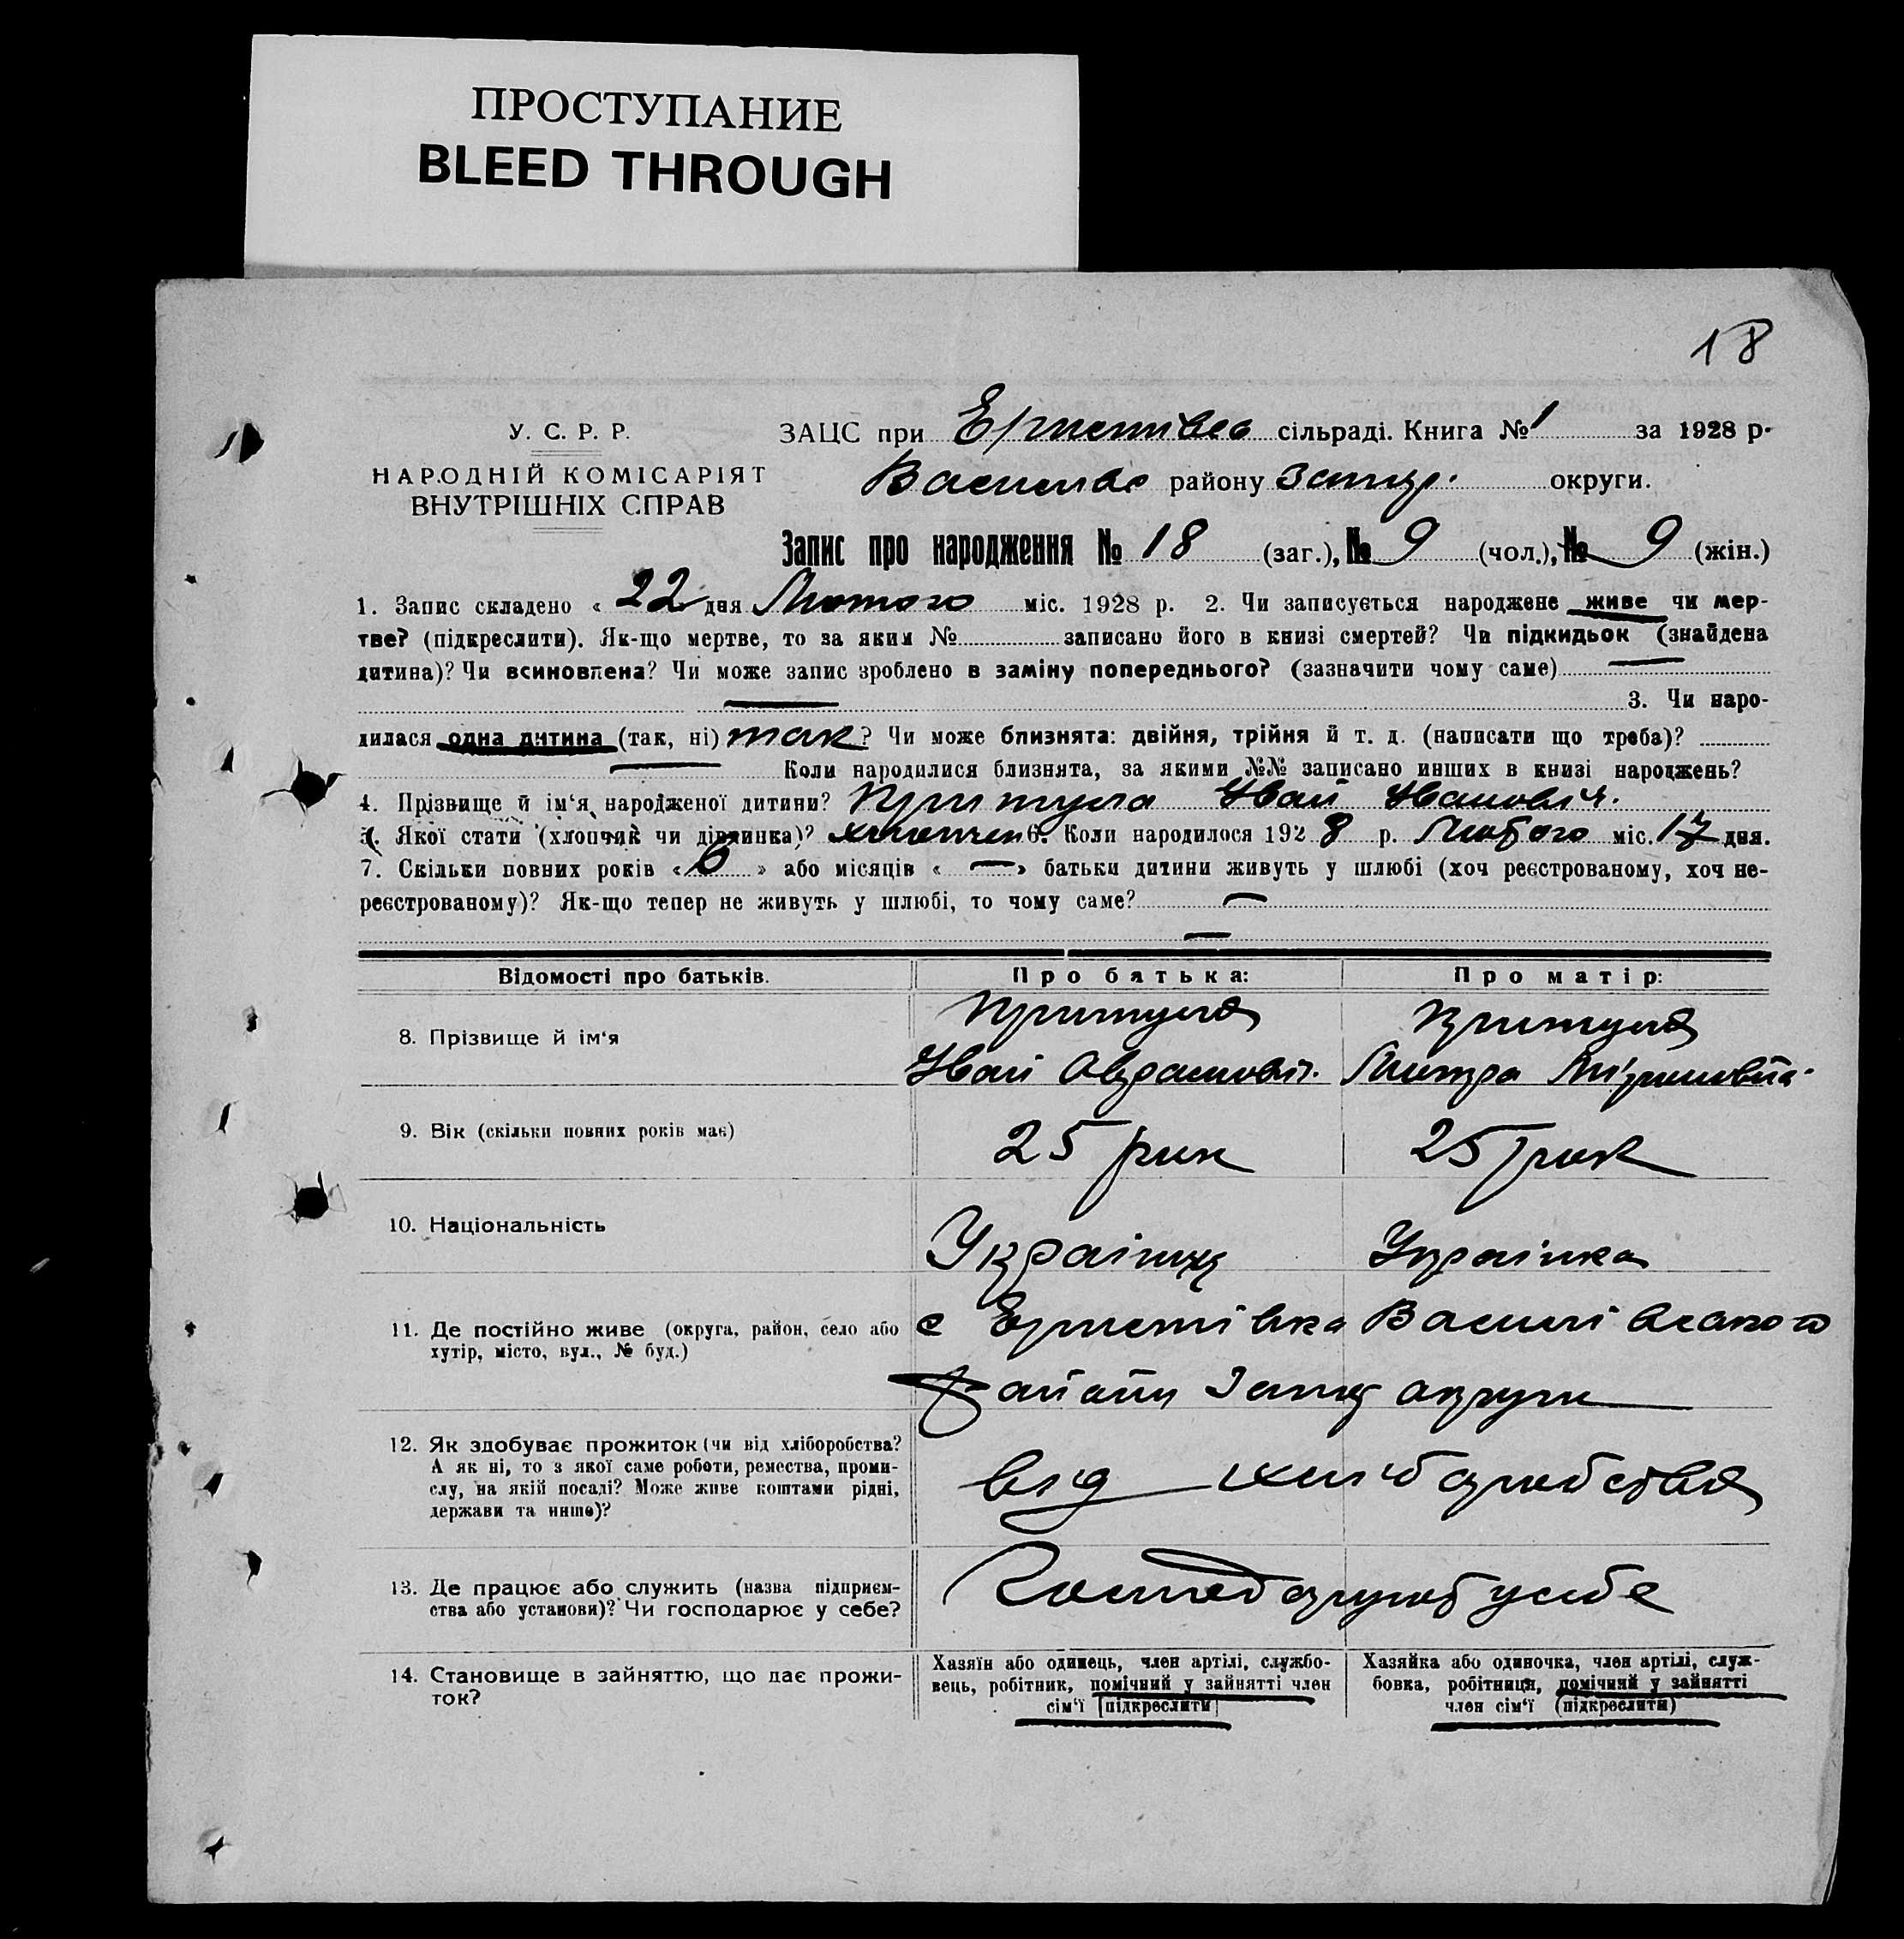 ПРОСТУПАНИЕ
BLEED THROUGH
18
У. С. Р. Р.
НАРОДНІЙ КОМІСАРІЯТ
ВНУТРІШНІХ СПРАВ
ЗАЦС при сільраді. Книга № 1 за 1928 р.
району округи.
Запис про народження № 18 (заг.), № 9 (чол.), № 9 (жін.)
1. Запис складено « 22 дня Лютого міс. 1928 р. 2. Чи записується народжене живе чи мер-
тве? (підкреслити). Як-що мертве, то за яким № записано його в книзі смертей? Чи підкидьок (знайдена
дитина)? Чи всиновлена? Чи може запис зроблено в заміну попереднього? (зазначити чому саме)
3. Чи наро-
дилася одна дитина (так, ні) так? Чи може близнята: двійня, трійня й т. д. (написати що треба)?
Коли народилися близнята, за якими №№ записано инших в книзі народжень?
4. Прізвище й ім‘я народженої дитини? Притула Іван Іванович.
5. Якої стати (хлопчик чи дівчинка)? 6. Коли народилося 1928 р. Лютого міс. 17 дня.
7. Скільки повних років « 6 » або місяців « — » батьки дитини живуть у шлюбі (хоч реєстрованому, хоч не-
реєстрованому)? Як-що тепер не живуть у шлюбі, то чому саме? —
—
Відомості про батьків. Про батька: Про матір:
8. Прізвище й ім‘я
Притула Притула
Іван
9. Вік (скільки повних років має) 25 рик 25 рик
10. Національність Українец Українка
11. Де постійно живе (округа, район, село або
хутір, місто, вул., № буд.)
с
району округи
12. Як здобуває прожиток (чи від хліборобства?
А як ні, то з якої саме роботи, ремества, проми-
слу, на якій посаді? Може живе коштами рідні,
держави та инше)?
від хліборобства
13. Де працює або служить (назва підприєм-
ства або установи)? Чи господарює у себе?
у себе
14. Становище в зайняттю, що дає прожи-
ток?
Хазяїн або одинець, член артілі, службо-
вець, робітник, помічний у зайнятті член
сім‘ї (підкреслити)
Хазяйка або одиночка, член артілі, служ-
бовка, робітниця, помічний у зайнятті
член сім‘ї (підкреслити)